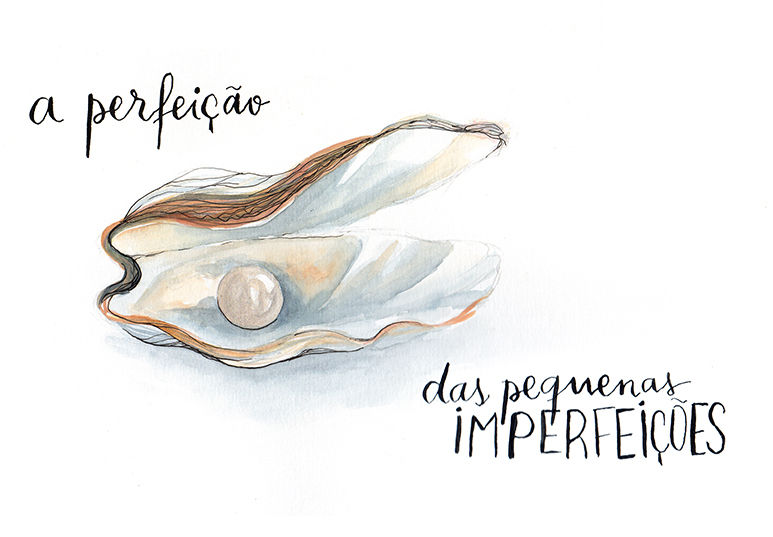 a perfeição
das pequenas
IMPERFEIÇÕES